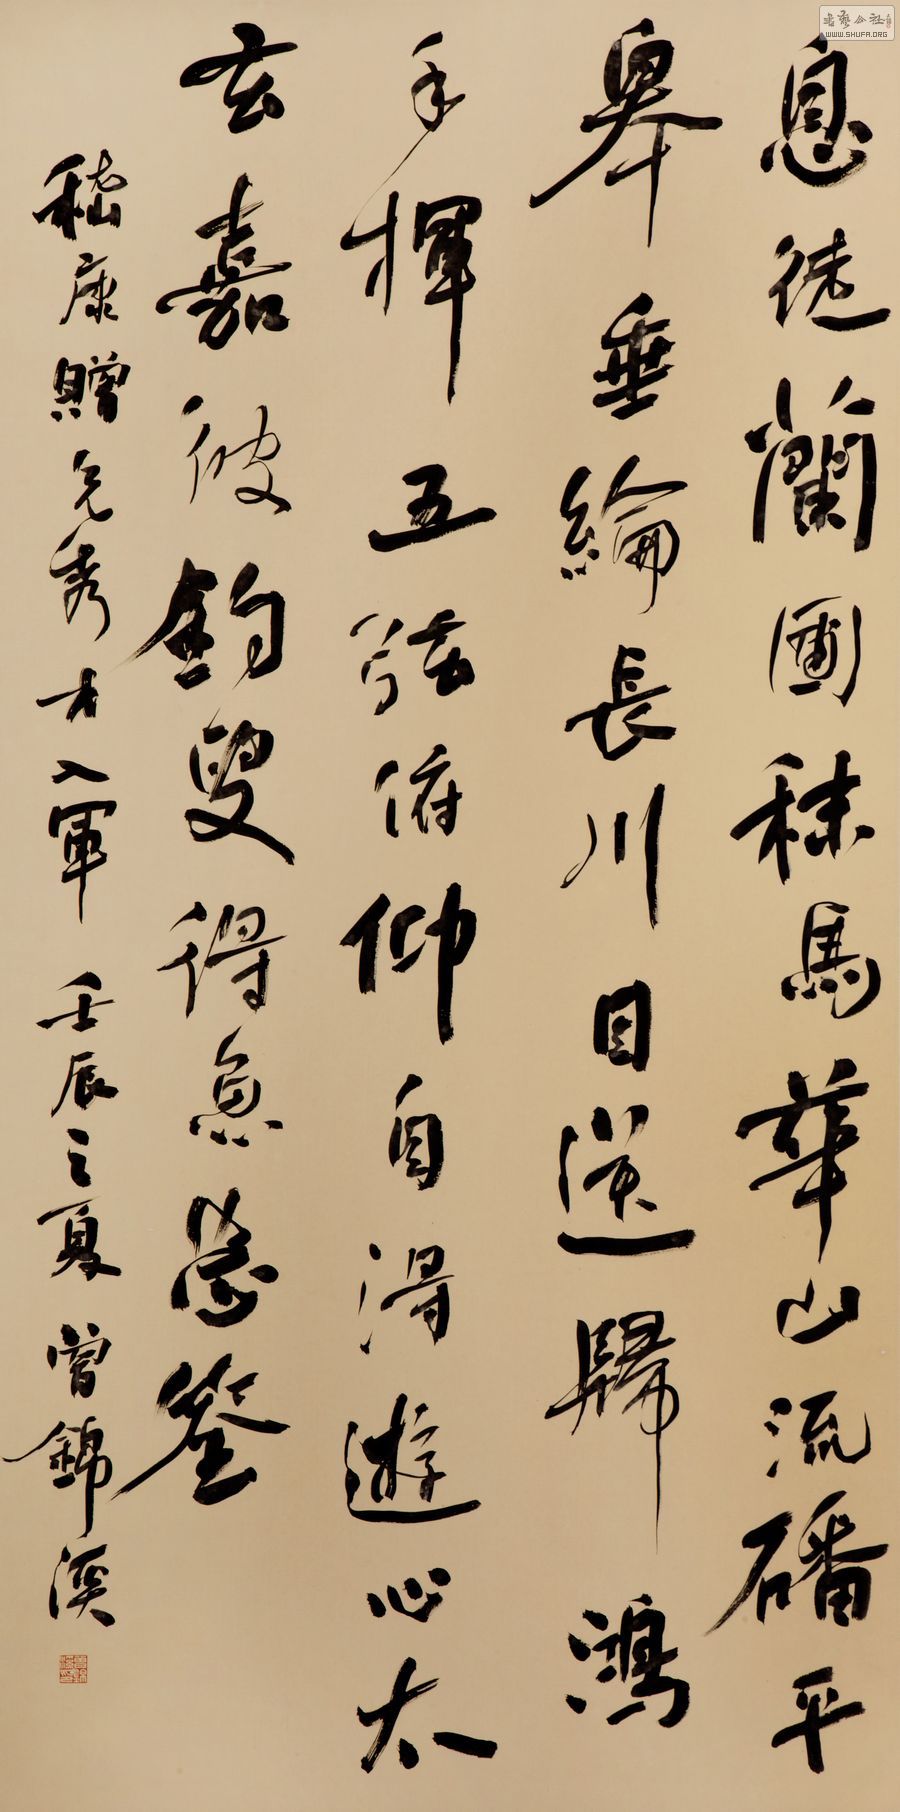 息徒蘭圃秣馬華山流磻平
皋垂綸長川目送歸鴻
手揮五弦俯仰自得遊心太
玄嘉彼釣叟得魚忘筌
嵇康贈兄秀才入軍 壬辰之夏 曾錦溪
WWW.SHUFA.ORG